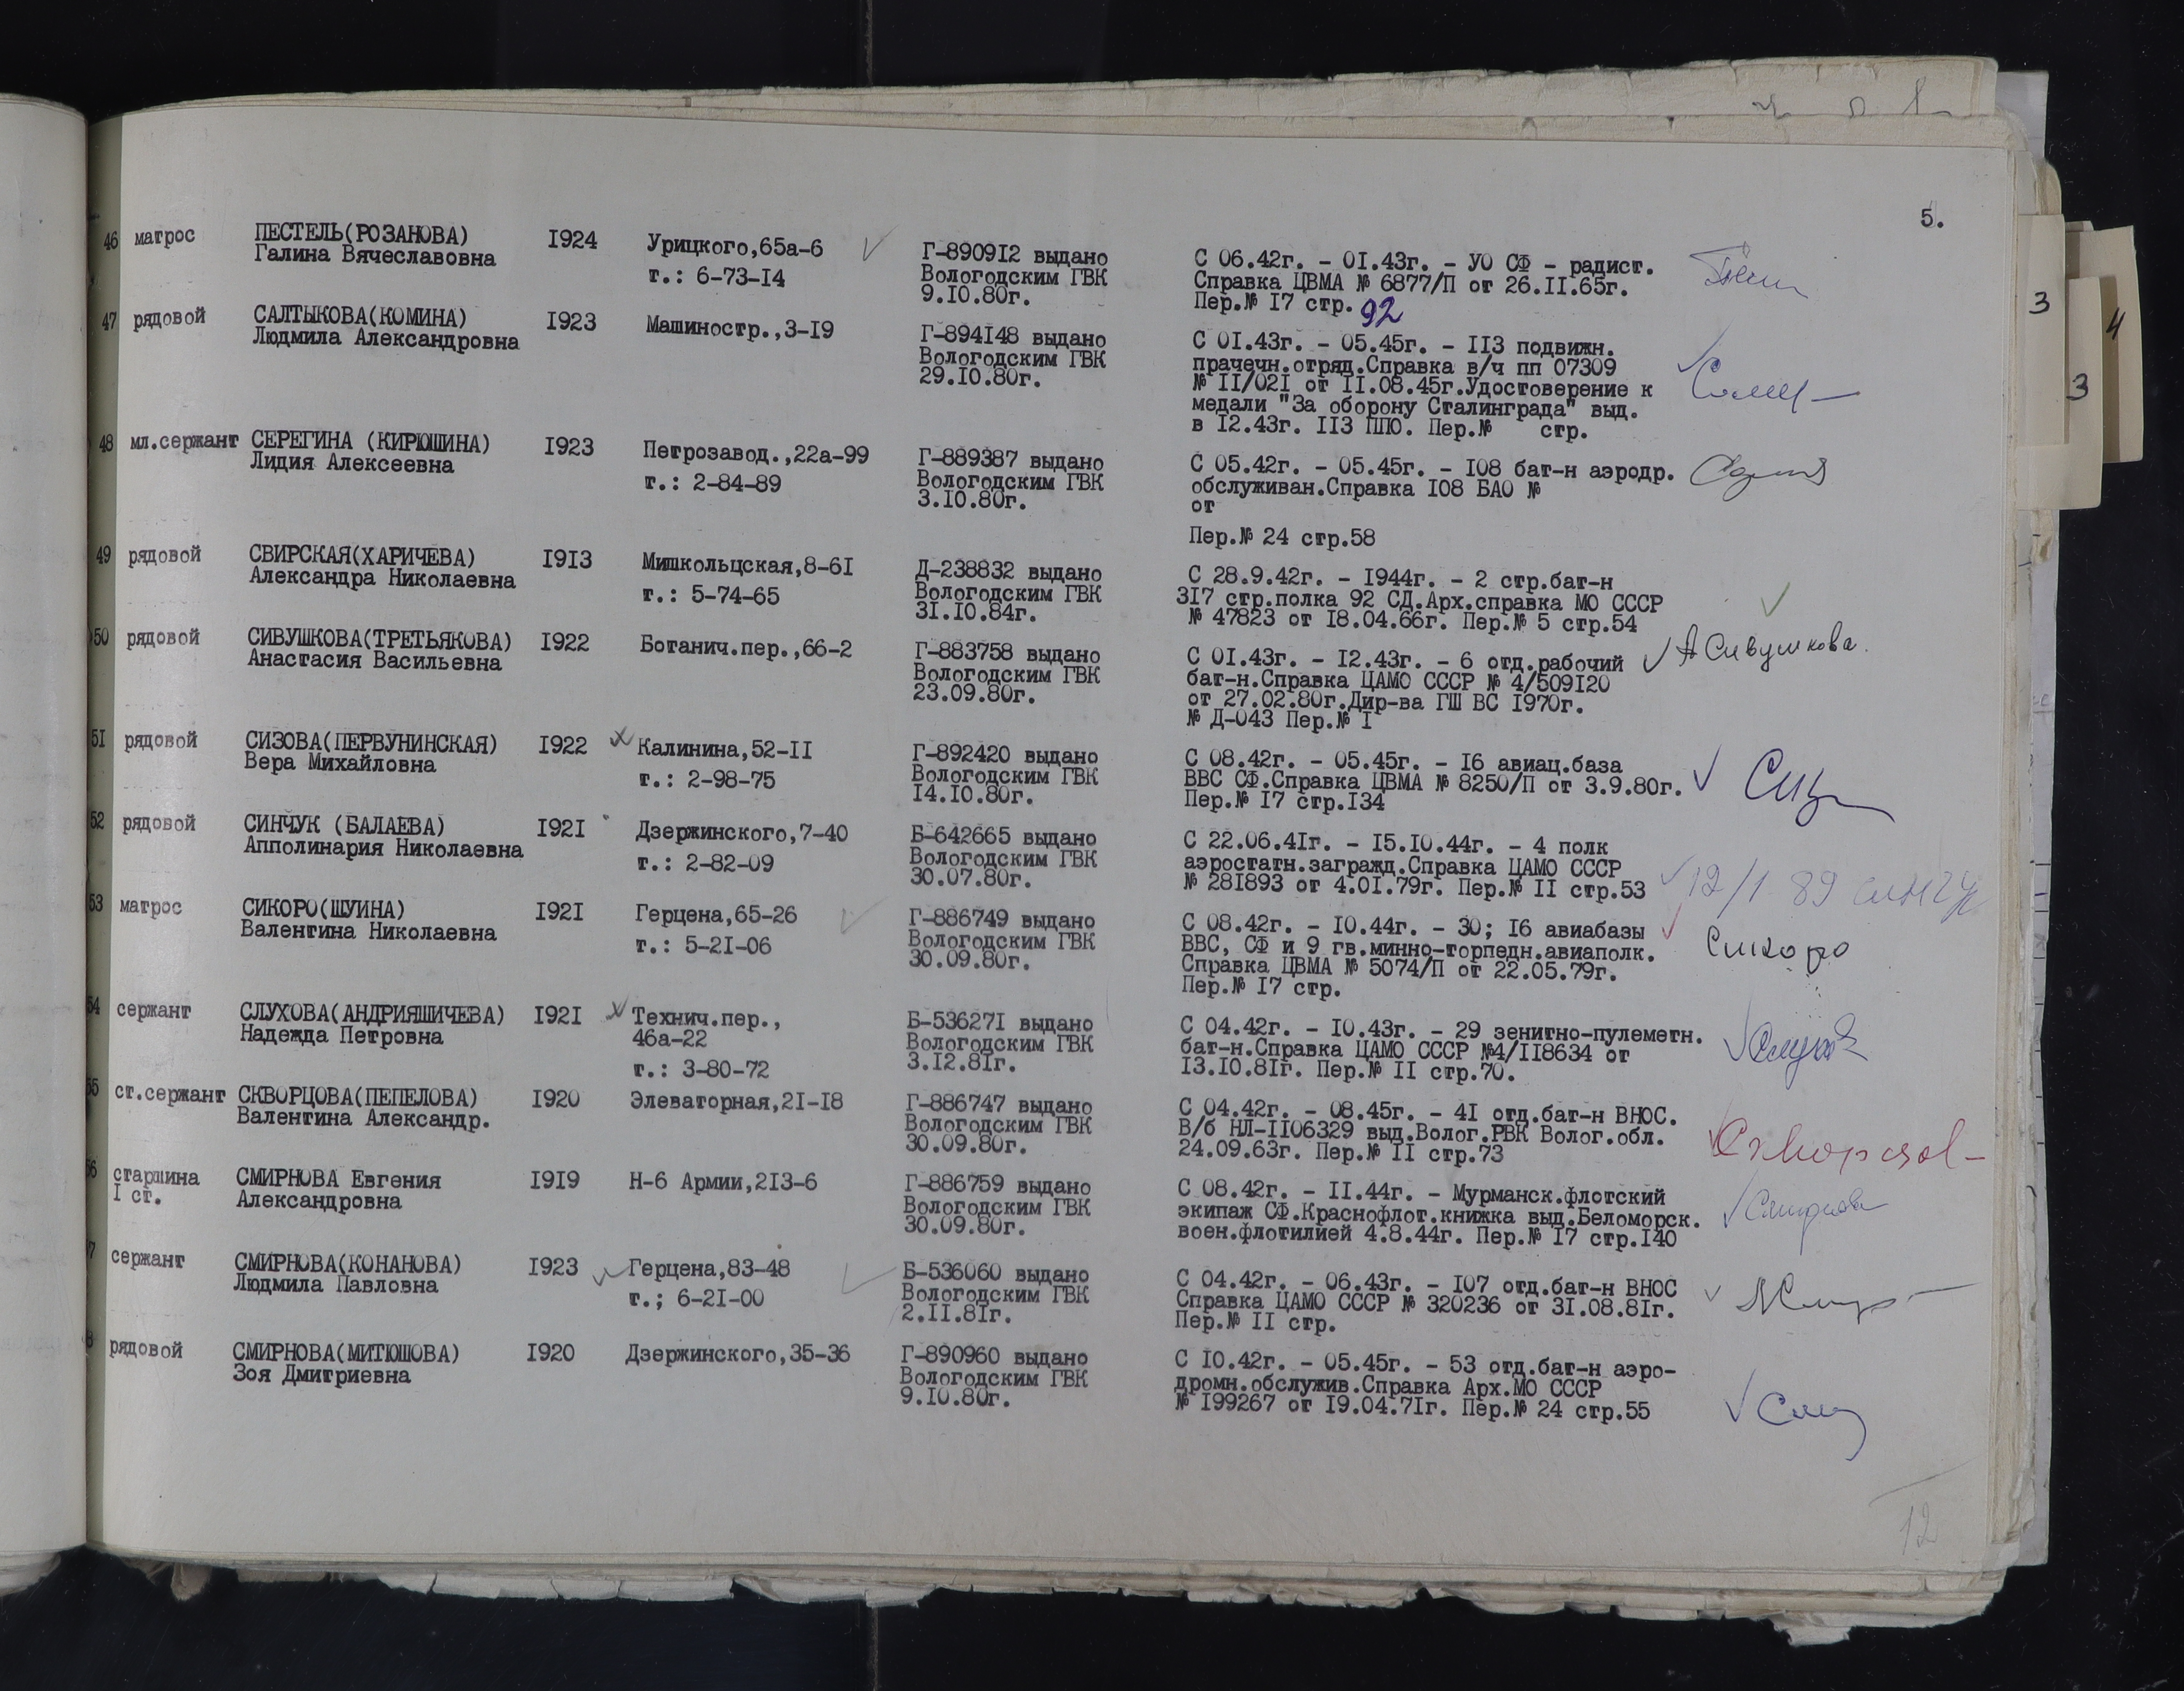 5.
46 матрос ПЕСТЕЛЬ(РОЗАНОВА) I924 Урицкого,65а-6 Г-8909I2 выдано С 06.42г. - 0I.43г. - УО СФ - радист.
Галина Вячеславовна т.: 6-73-I4 Вологодским ГВК Справка ЦВМА № 6877/П от 26.II.65г.
9.I0.80г. Пер.№ I7 стр. 92
47 рядовой САЛТЫКОВА(КОМИНА) I923 Машиностр.,3-I9 Г-894I48 выдано С 0I.43г. - 05.45г. - II3 подвижн.
Людмила Александровна Вологодским ГВК прачечн.отряд.Справка в/ч пп 07309
29.I0.80г. № II/02I от II.08.45г.Удостоверение к
медали "За оборону Сталинграда" выд.
в I2.43г. II3 ППО. Пер.№ стр.
48 мл.сержант СЕРЕГИНА (КИРЮШИНА) I923 Петрозавод.,22а-99 Г-889387 выдано С 05.42г. - 05.45г. - I08 бат-н аэродр.
Лидия Алексеевна т.: 2-84-89 Вологодским ГВК обслуживан.Справка I08 БАО №
3.I0.80г. от
Пер.№ 24 стр.58
49 рядовой СВИРСКАЯ(ХАРИЧЕВА) I9I3 Мишкольцская,8-6I Д-238832 выдано С 28.9.42г. - I944г. - 2 стр.бат-н
Александра Николаевна т.: 5-74-65 Вологодским ГВК 3I7 стр.полка 92 СД.Арх.справка МО СССР
3I.I0.84г. № 47823 от I8.04.66г. Пер.№ 5 стр.54
50 рядовой СИВУШКОВА(ТРЕТЬЯКОВА) I922 Ботанич.пер.,66-2 Г-883758 выдано С 0I.43г. - I2.43г. - 6 отд.рабочий А Сивушкова.
Анастасия Васильевна Вологодским ГВК бат-н.Справка ЦАМО СССР № 4/509I20
23.09.80г. от 27.02.80г.Дир-ва ГШ ВС I970г.
№ Д-043 Пер.№ I
5I рядовой СИЗОВА(ПЕРВУНИНСКАЯ) I922 Калинина,52-II Г-892420 выдано С 08.42г. - 05.45г. - I6 авиац.база
Вера Михайловна т.: 2-98-75 Вологодским ГВК ВВС СФ.Справка ЦВМА № 8250/П от 3.9.80г.
I4.I0.80г. Пер.№ I7 стр.I34
52 рядовой СИНЧУК (БАЛАЕВА) I92I Дзержинского,7-40 Б-642665 выдано С 22.06.4Iг. - I5.I0.44г. - 4 полк
Апполинария Николаевна т.: 2-82-09 Вологодским ГВК аэростатн.загражд.Справка ЦАМО СССР
30.07.80г. № 28I893 от 4.0I.79г. Пер.№ II стр.53 12/1 89
53 матрос СИКОРО(ШУИНА) I92I Герцена,65-26 Г-886749 выдано С 08.42г. - I0.44г. - 30; I6 авиабазы Сикоро
Валентина Николаевна т.: 5-2I-06 Вологодским ГВК ВВС, СФ и 9 гв.минно-торпедн.авиаполк.
30.09.80г. Справка ЦВМА № 5074/П от 22.05.79г.
Пер.№ I7 стр.
54 сержант СЛУХОВА(АНДРИЯШИЧЕВА) I92I Технич.пер., Б-53627I выдано С 04.42г. - I0.43г. - 29 зенитно-пулеметн.
Надежда Петровна 46а-22 Вологодским ГВК бат-н.Справка ЦАМО СССР №4/II8634 от
т.: 3-80-72 3.I2.8Iг. I3.I0.8Iг. Пер.№ II стр.70.
55 ст.сержант СКВОРЦОВА(ПЕПЕЛОВА) I920 Элеваторная,2I-I8 Г-886747 выдано С 04.42г. - 08.45г. - 4I отд.бат-н ВНОС.
Валентина Александр. Вологодским ГВК В/б НЛ-II06329 выд.Волог.РВК Волог.обл.
30.09.80г. 24.09.63г. Пер.№ II стр.73
56 старшина СМИРНОВА Евгения I9I9 Н-6 Армии,2I3-6 Г-886759 выдано С 08.42г. - II.44г. - Мурманск.флотский
I ст. Александровна Вологодским ГВК экипаж СФ.Краснофлот.книжка выд.Беломорск.
30.09.80г. воен.флотилией 4.8.44г. Пер.№ I7 стр.I40
7 сержант СМИРНОВА(КОНАНОВА) I923 Герцена,83-48 Б-536060 выдано С 04.42г. - 06.43г. - I07 отд.бат-н ВНОС
Людмила Павловна т.; 6-2I-00 Вологодским ГВК Справка ЦАМО СССР № 320236 от 3I.08.8Iг.
2.II.8Iг. Пер.№ II стр.
8 рядовой СМИРНОВА(МИТЮШОВА) I920 Дзержинского,35-36 Г-890960 выдано С I0.42г. - 05.45г. - 53 отд.бат-н аэро-
Зоя Дмитриевна Вологодским ГВК дромн.обслужив.Справка Арх.МО СССР
9.I0.80г. № I99267 от I9.04.7Iг. Пер.№ 24 стр.55
12
3
3
4